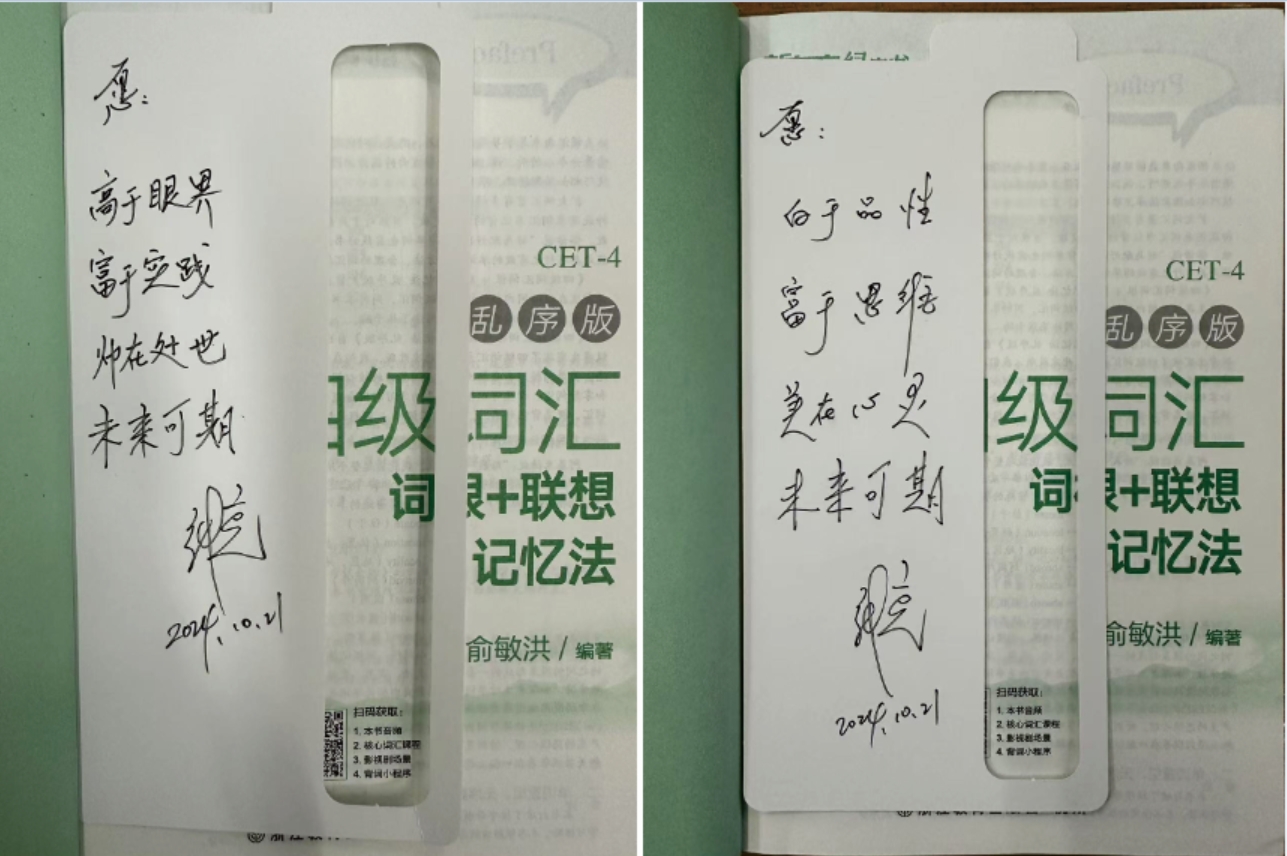 愿：
高于眼界
富于实践
帅在处世
未来可期
2024.10.21
CET-4
乱序版
四级词汇
词根+联想
记忆法
俞敏洪/编著
扫码获取：
1. 本书音频
2. 核心词汇课程
3. 影视剧场景
4. 背词小程序
愿：
白于品性
富于思维
美在心灵
未来可期
2024.10.21
Preface
CET-4
乱序版
级词汇
词根+联想
记忆法
俞敏洪/编著
扫码获取：
1. 本书音频
2. 核心词汇课程
3. 影视剧场景
4. 背词小程序